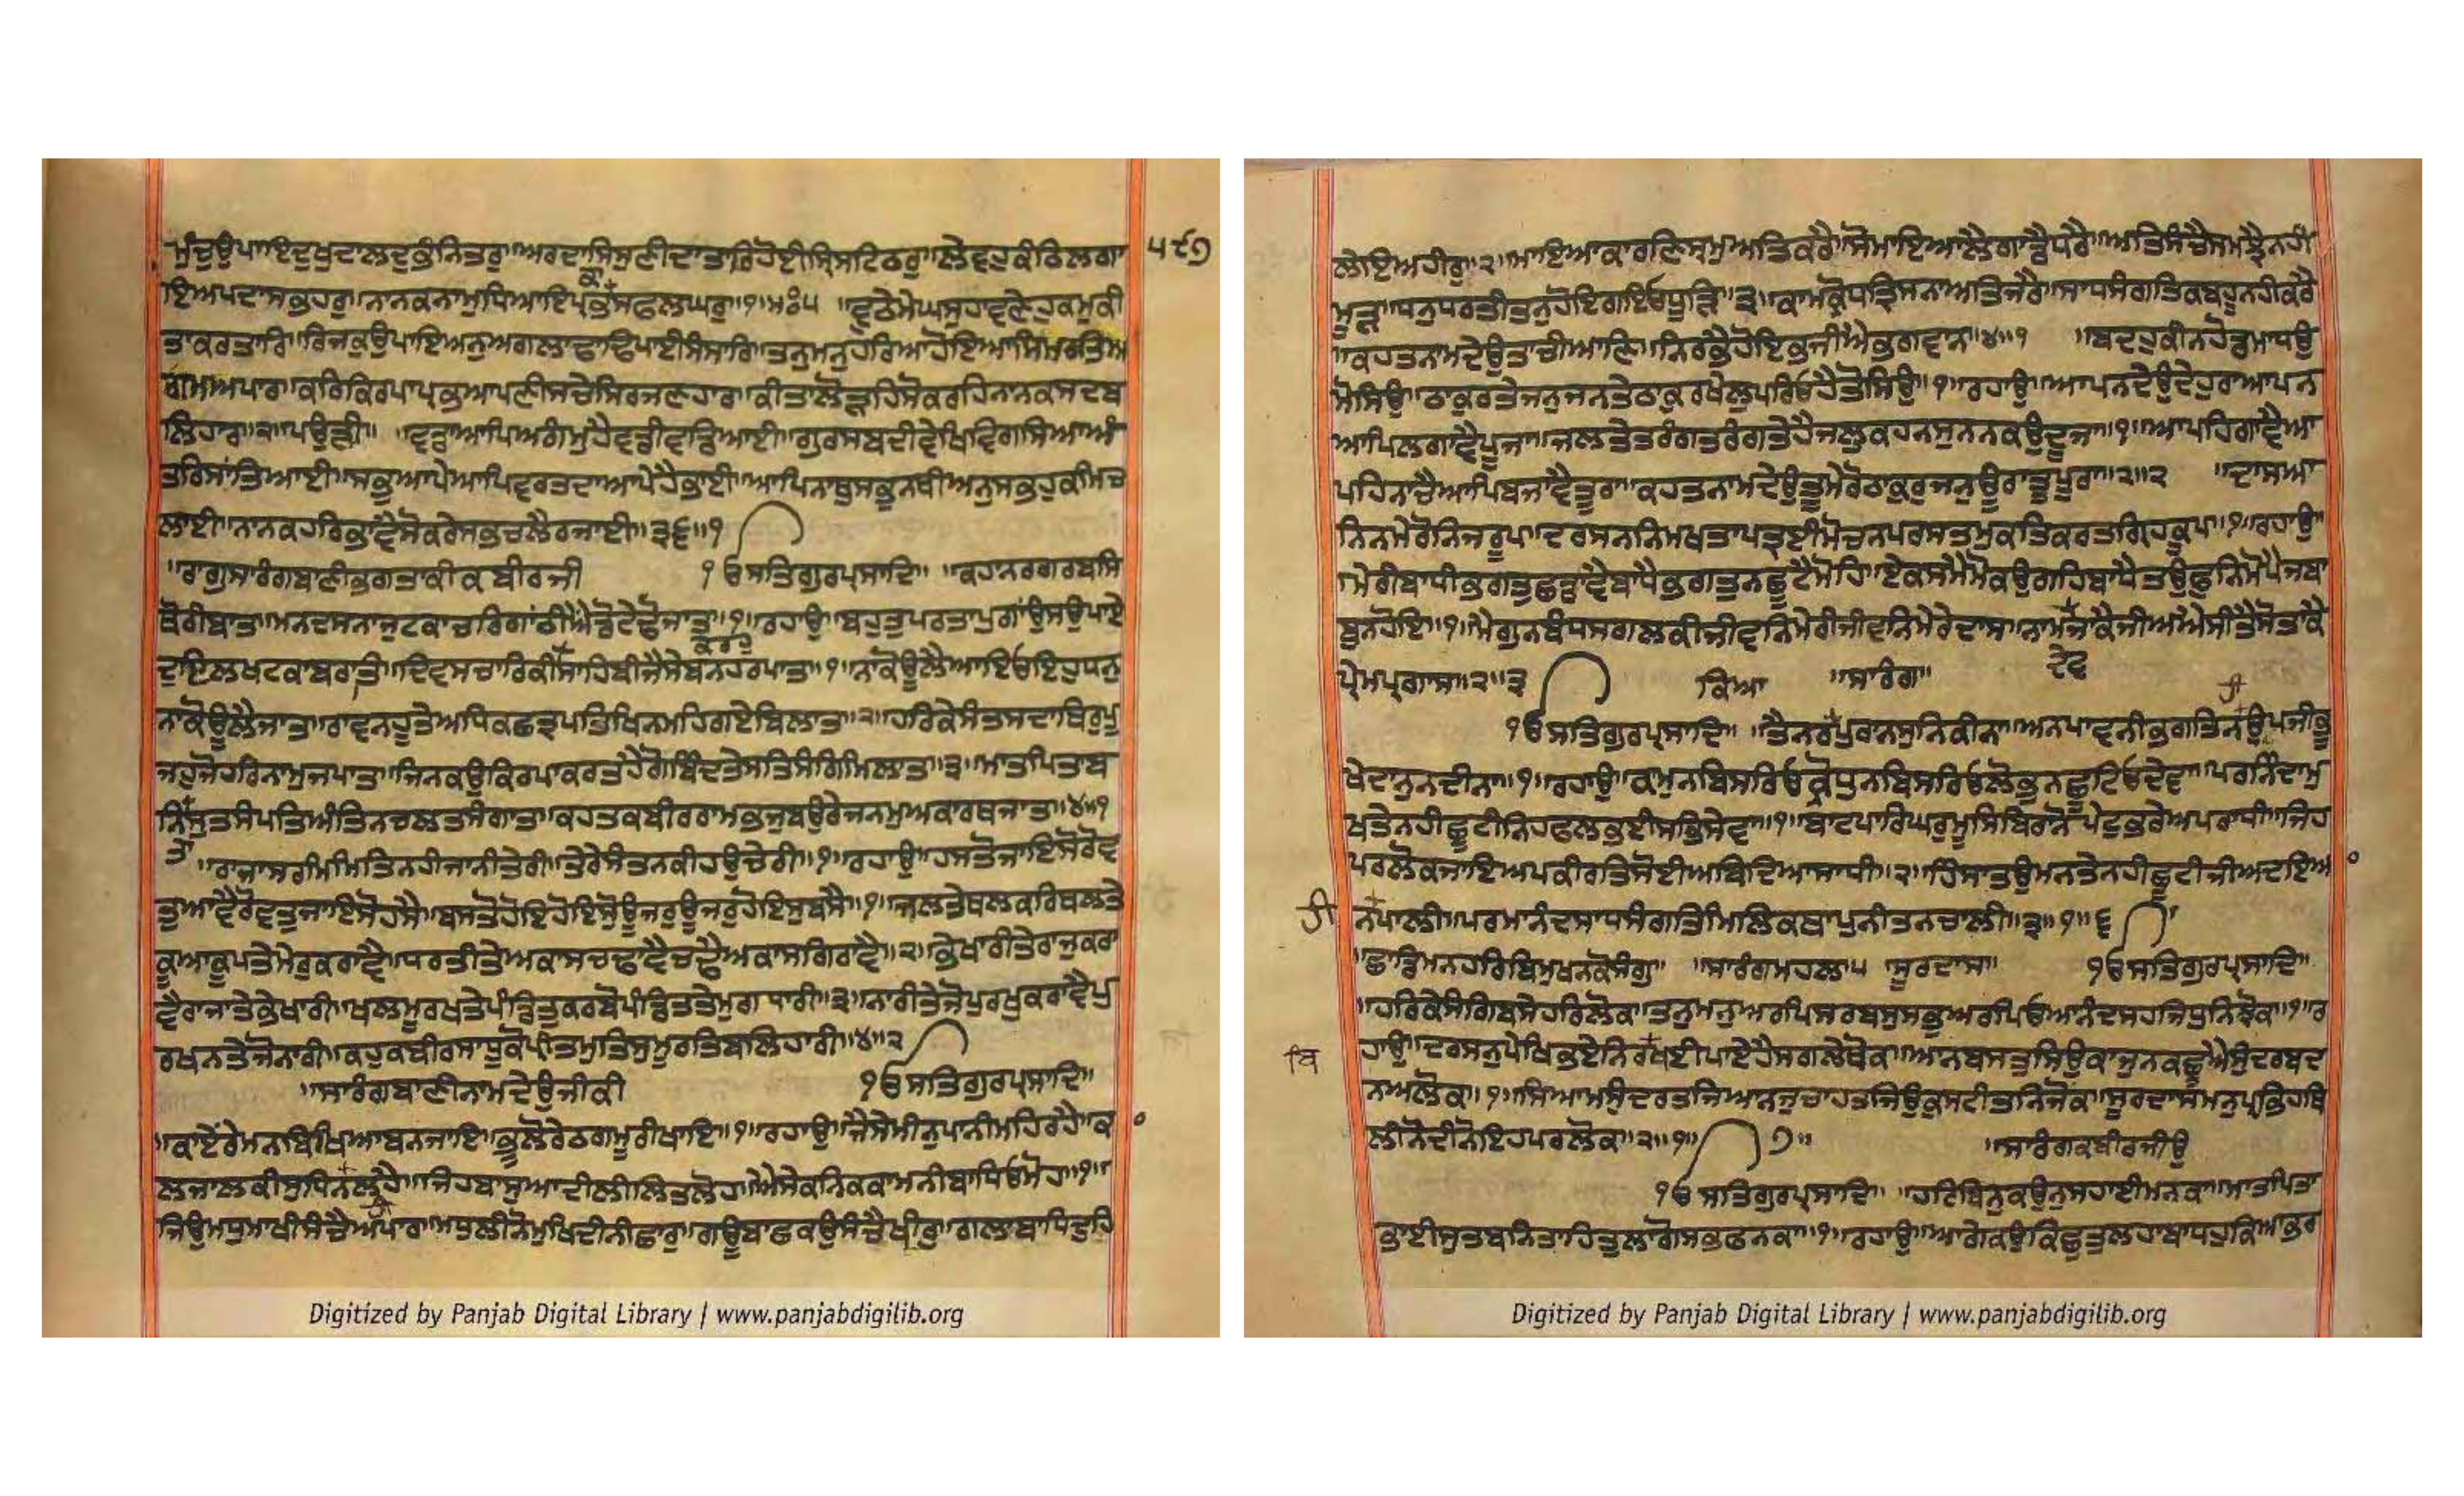 ਮੁੰਦੁਉਪਾਇਦੁਖੁਦਾਲਦੁਭੰਨਿਤਰੁ॥ਅਰਦਾਸਿਸੁਣੀਦਾਤਾਰਿਹੋਈਸਿ੍ਸਟਿਠਰੁ॥ਲੇਵਹੁਕੰਠਿਲਗਾ ੫੯੭
ਇਅਪਦਾਸਭਹਰੁ॥ਨਾਨਕਨਾਮੁਧਿਆਇਪ੍ਰਭਕਾਸਫਲਘਰੁ॥੧॥ਮਃ੫ ॥ਵੁਠੇਮੇਘਸੁਹਾਵਣੇਹੁਕਮੁਕੀ
ਤਾਕਰਤਾਰਿ॥ਰਿਜਕੁਉਪਾਇਅਨੁਅਗਲਾਠਾਢਿਪਾਈਸੰਸਾਰਿ॥ਤਨੁਮਨੁਹਰਿਆਹੋਇਆਸਿਮਰਤਅ
ਗਮਅਪਾਰ॥ਕਰਿਕਿਰਪਾਪ੍ਰਭਆਪਣੀਸਚੇਸਿਰਜਣਹਾਰ॥ਕੀਤਾਲੋੜਹਿਸੋਕਰਹਿਨਾਨਕਸਦਬ
ਲਿਹਾਰ॥੨॥ਪਉੜੀ॥ ॥ਵਡਾਆਪਿਅਗੰਮੁਹੈਵਡੀਵਡਿਆਈ॥ਗੁਰਸਬਦੀਵੇਖਿਵਿਗਸਿਆਅੰ
ਤਰਿਸਾਂਤਿਆਈ॥ਸਭੁਆਪੇਆਪਿਵਰਤਦਾਆਪੇਹੈਭਾਈ॥ਆਪਿਨਾਥੁਸਭਨਥੀਅਨੁਸਭਹੁਕਮਿਚ
ਲਾਈ॥ਨਾਨਕਹਰਿਭਾਵੈਸੋਕਰੇਸਭਚਲੈਰਜਾਈ॥੩੬॥੧
॥ਰਾਗੁਸਾਰੰਗਬਾਣੀਭਗਤਾਕੀਕਬੀਰਜੀ ੧ੳਸਤਿਗੁਰਪ੍ਰਸਾਦਿ॥ ॥ਕਹਾਨਰਗਰਬਸਿ
ਥੋਰੀਬਾਤ॥ਮਨਦਸਨਾਜੁਟਕਾਚਾਰਿਗਾਂਠੀਐਂਡੌਟੇਢੌਜਾਤੁ॥੧॥ਰਹਾਉ॥ਬਹੁਤੁਪਰਤਾਪੁਗਾਂਉਸਉਪਾਏ
ਦੁਇਲਖਟਕਾਬਰਾਤ॥ਦਿਵਸਚਾਰਿਕੀਸਾਹਿਬੀਜੈਸੇਬਨਹਰਪਾਤ॥੧॥ਨਾਕੋਊਲੈਆਇਓਇਹੁਧਨੁ
ਕਰਹੁ
ਨਾਕੋਊਲੈਜਾਤ॥ਰਾਵਨਹੂਤੇਅਧਿਕਛਤ੍ਰਪਤਿਖਿਨਮਹਿਗਏਬਿਲਾਤ॥੨॥ਹਰਿਕੇਸੰਤਸਦਾਥਿਰੁਪੂ
ਜਹੁਜੋਹਰਿਨਾਮੁਜਪਾਤ॥ਜਿਨਕਉਕਿਰਪਾਕਰਤਹੈਗੋਬਿੰਦਤੇਸਤਿਸੰਗਿਮਿਲਾਤ॥੩॥ਮਾਤਪਿਤਾਬ
ਨਿਤਾਸੁਤਸੰਪਤਿਅੰਤਿਨਚਲਤਸੰਗਾਤ॥ਕਹਤਕਬੀਰਰਾਮਭਜੁਬਉਰੇਜਨਮੁਅਕਾਰਥਜਾਤ॥੪॥੧
॥ਰਾਜਾਸ੍ਰਮਮਿਤਿਨਹੀਜਾਨੀਤੇਰੀ॥ਤੇਰੇਸੰਤਨਕੀਹਉਚੇਰੀ॥੧॥ਰਹਾਉ॥ਹਸਤੋਜਾਇਸੋਰੋਵ
ਤੁਆਵੈਰੋਵਤੁਜਾਇਸੋਹਸੈ॥ਬਸਤੋਹੋਇਹੋਇਸੋਊਜਰੁਊਜਰੁਹੋਇਸੁਬਸੈ॥੧॥ਜਲਤੇਥਲਕਰਿਥਲਤੇ
ਕੂਆਕੂਪਤੇਮੇਰੁਕਰਾਵੈ॥ਧਰਤੀਤੇਅਕਾਸਚਢਾਵੈਚਢੈਅਕਾਸਗਿਰਾਵੈ॥੨॥ਭੇਖਾਰੀਤੇਰਾਜੁਕਰਾ
ਵੈਰਾਜਾਤੇਭੇਖਾਰੀ॥ਖਲਮੂਰਖਤੇਪੰਡਿਤੁਕਰਬੋਪੰਡਿਤਤੇਮੁਗਧਾਰੀ॥੩॥ਨਾਰੀਤੇਜੋਪੁਰਖੁਕਰਾਵੈਪੁ
ਰਖਨਤੇਜੋਨਾਰੀ॥ਕਹੁਕਬੀਰਸਾਧੂਕੋਪ੍ਰੀਤਮੁਤਿਸੁਮੂਰਤਿਬਲਿਹਾਰੀ॥੪॥੨
॥ਸਾਰੰਗਬਾਣੀਨਾਮਦੇਉਜੀਕੀ ੧ੳਸਤਿਗੁਰਪ੍ਰਸਾਦਿ॥
॥ਕਾਏਂਰੇਮਨਬਿਖਿਆਬਨਜਾਇ॥ਭੂਲੋਰੇਠਗਮੂਰੀਖਾਇ॥੧॥ਰਹਾਉ॥ਜੈਸੇਮੀਨੁਪਾਨੀਮਹਿਰਹੈ॥ਕਾ
ਲਜਾਲਕੀਸੁਧਿਨਲਹੈ॥ਜਿਹਬਾਸੁਆਦੀਲੀਲਿਤਲੋਹ॥ਐਸੇਕਨਿਕਕਾਮਨੀਬਾਧਿਓਮੋਹ॥੧॥
ਜਿਉਮਧੁਮਾਖੀਸੰਚੈਅਪਾਰ॥ਮਧੁਲੀਨੋਮੁਖਿਦੀਨੀਛਾਰੁ॥ਗਊਬਾਛਕਉਸੰਚੈਖੀਰੁ॥ਗਲਾਬਾਂਧਿਦੁਹਿ
ਲੇਇਅਹੀਰੁ॥੨॥ਮਾਇਆਕਾਰਣਿਸ੍ਰਮੁਅਤਿਕਰੈ॥ਸੋਮਾਇਆਲੈਗਾਡੈਧਰੈ॥ਅਤਿਸੰਚੈਸਮਝੈਨਹੀ
ਮੂੜ੍॥ਧਨੁਧਰਤੀਤਨੁਹੋਇਗਇਓਧੂੜਿ॥੩॥ਕਾਮਕ੍ਰੋਧਤ੍ਰਿਸਨਾਅਤਿਜਰੈ॥ਸਾਧਸੰਗਤਿਕਬਹੂਨਹੀਕਰੈ
॥ਕਹਤਨਾਮਦੇਉਤਾਚੀਆਣਿ॥ਨਿਰਭੈਹੋਇਭਜੀਐਭਗਵਾਨ॥੪॥੧ ॥ਬਦਹੁਕੀਨਹੋਡਮਾਧਉ
ਮੋਸਿਉ॥ਠਾਕੁਰਤੇਜਨੁਜਨਤੇਠਾਕੁਰਖੇਲੁਪਰਿਓਹੈਤੋਸਿਉ॥੧॥ਰਹਾਉ॥ਆਪਨਦੇਉਦੇਹੁਰਾਆਪਨ
ਆਪਿਲਗਾਵੈਪੂਜਾ॥ਜਲਤੇਤਰੰਗਤਰੰਗਤੇਹੈਜਲੁਕਹਨਸੁਨਨਕਉਦੂਜਾ॥੧॥ਆਪਹਿਗਾਵੈਆ
ਪਹਿਨਾਚੈਆਪਿਬਜਾਵੈਤੂਰਾ॥ਕਹਤਨਾਮਦੇਉਤੂਮੇਰੋਠਾਕੁਰੁਜਨੁਊਰਾਤੂਪੂਰਾ॥੨॥੨ ॥ਦਾਸਅ
ਨਿਨਮੇਰੋਨਿਜਰੂਪ॥ਦਰਸਨਨਿਮਖਤਾਪਤ੍ਰਈਮੋਚਨਪਰਸਤਮੁਕਤਿਕਰਤਗ੍ਰਿਹਕੂਪ॥੧॥ਰਹਾਉ॥
॥ਮੇਰੀਬਾਂਧੀਭਗਤੁਛਡਾਵੈਬਾਂਧੈਭਗਤੁਨਛੂਟੈਮੋਹਿ॥ਏਕਸਮੈਮੋਕਉਗਹਿਬਾਂਧੈਤਉਫੁਨਿਮੋਪੈਜਬਾ
ਬੁਨਹੋਇ॥੧॥ਮੈਗੁਨਬੰਧਸਗਲਕੀਜੀਵਨਿਮੇਰੀਜੀਵਨਿਮੇਰੇਦਾਸ॥ਨਾਮਦੇਵਜਾਕੈਜੀਅਐਸੀਤੈਸੋਤਾਕੈ
ਪ੍ਰੇਮਪ੍ਰਗਾਸ॥੨॥੩ ਕਿਆ ॥ਸਾਰੰਗ॥ ਦੇਵ
੧ੳਸਤਿਗੁਰਪ੍ਰਸਾਦਿ॥ ॥ਤੈਨਰਪੁਰਾਨਸੁਨਿਕੀਨਾ॥ਅਨਪਾਵਨੀਭਗਤਿਨਉਪਜੀਭੂ
ਖੇਦਾਨੁਨਦੀਨਾ॥੧॥ਰਹਾਉ॥ਕਾਮੁਨਬਿਸਰਿਓਕ੍ਰੋਧੁਨਬਿਸਰਿਓਲੋਭੁਨਛੂਟਿਓਦੇਵਾ॥ਪਰਨਿੰਦਾਮੁ
ਖਤੇਨਹੀਛੂਟੀਨਿਹਫਲਭਈਸਭਸੇਵਾ॥੧॥ਬਾਟਪਾਰਿਘਰੁਮੂਸਿਬਿਰਾਨੋਪੇਟੁਭਰੇਅਪਰਾਧੀ॥ਜਿਹ
ਪਰਲੋਕਜਾਇਅਪਕੀਰਤਿਸੋਈਅਬਿਦਿਆਸਾਧੀ॥੨॥ਹਿੰਸਾਤਉਮਨਤੇਨਹੀਛੂਟੀਜੀਅਦਇਆ
ਨਪਾਲੀ॥ਪਰਮਾਨੰਦਸਾਧਸੰਗਤਿਮਿਲਿਕਥਾਪੁਨੀਤਨਚਾਲੀ॥੩॥੧॥੬
॥ਛਾਡਿਮਨਹਰਿਬਿਮੁਖਨਕੋਸੰਗੁ॥ ॥ਸਾਰੰਗਮਹਲਾ੫ ਸੂਰਦਾਸ॥ ੧ੳਸਤਿਗੁਰਪ੍ਰਸਾਦਿ॥
॥ਹਰਿਕੇਸੰਗਿਬਸੇਹਰਿਲੋਕ॥ਤਨੁਮਨੁਅਰਪਿਸਰਬਸੁਸਭੁਅਰਪਿਓਅਨੰਦਸਹਜਿਧੁਨਿਝੋਕ॥੧॥ਰ
ਬਿ ਹਾਉ॥ਦਰਸਨੁਪੇਖਿਭਏਨਿਰਬਿਖਈਪਾਏਹੈਸਗਲੇਥੋਕ॥ਆਨਬਸਤੁਸਿਉਕਾਜੁਨਕਛੂਐਸੁੰਦਰਬਦ
ਨਅਲੋਕ॥੧॥ਸਿਆਮਸੁੰਦਰਤਜਿਆਨਜੁਚਾਹਤਜਿਉਕੁਸਟੀਤਨਿਜੋਕ॥ਸੂਰਦਾਸਮਨੁਪ੍ਰਭਿਹਥਿ
ਲੀਨੋਦੀਨੋਇਹਪਰਲੋਕ॥੨॥੧॥ ੭॥ ॥ਸਾਰੰਗਕਬੀਰਜੀਉ
੧ੳਸਤਿਗੁਰਪ੍ਰਸਾਦਿ॥ ॥ਹਰਿਬਿਨੁਕਉਨੁਸਹਾਈਮਨਕਾ॥ਮਾਤਪਿਤਾ
ਭਾਈਸੁਤਬਨਿਤਾਹਿਤੁਲਾਗੋਸਭਫਨਕਾ॥੧॥ਰਹਾਉ॥ਆਗੇਕਉਕਿਛੁਤੁਲਹਾਬਾਂਧਹੁਕਿਆਭਰ
Digitized by Panjab Digital Library | www.panjabdigilib.org
Digitized by Panjab Digital Library | www.panjabdigilib.org